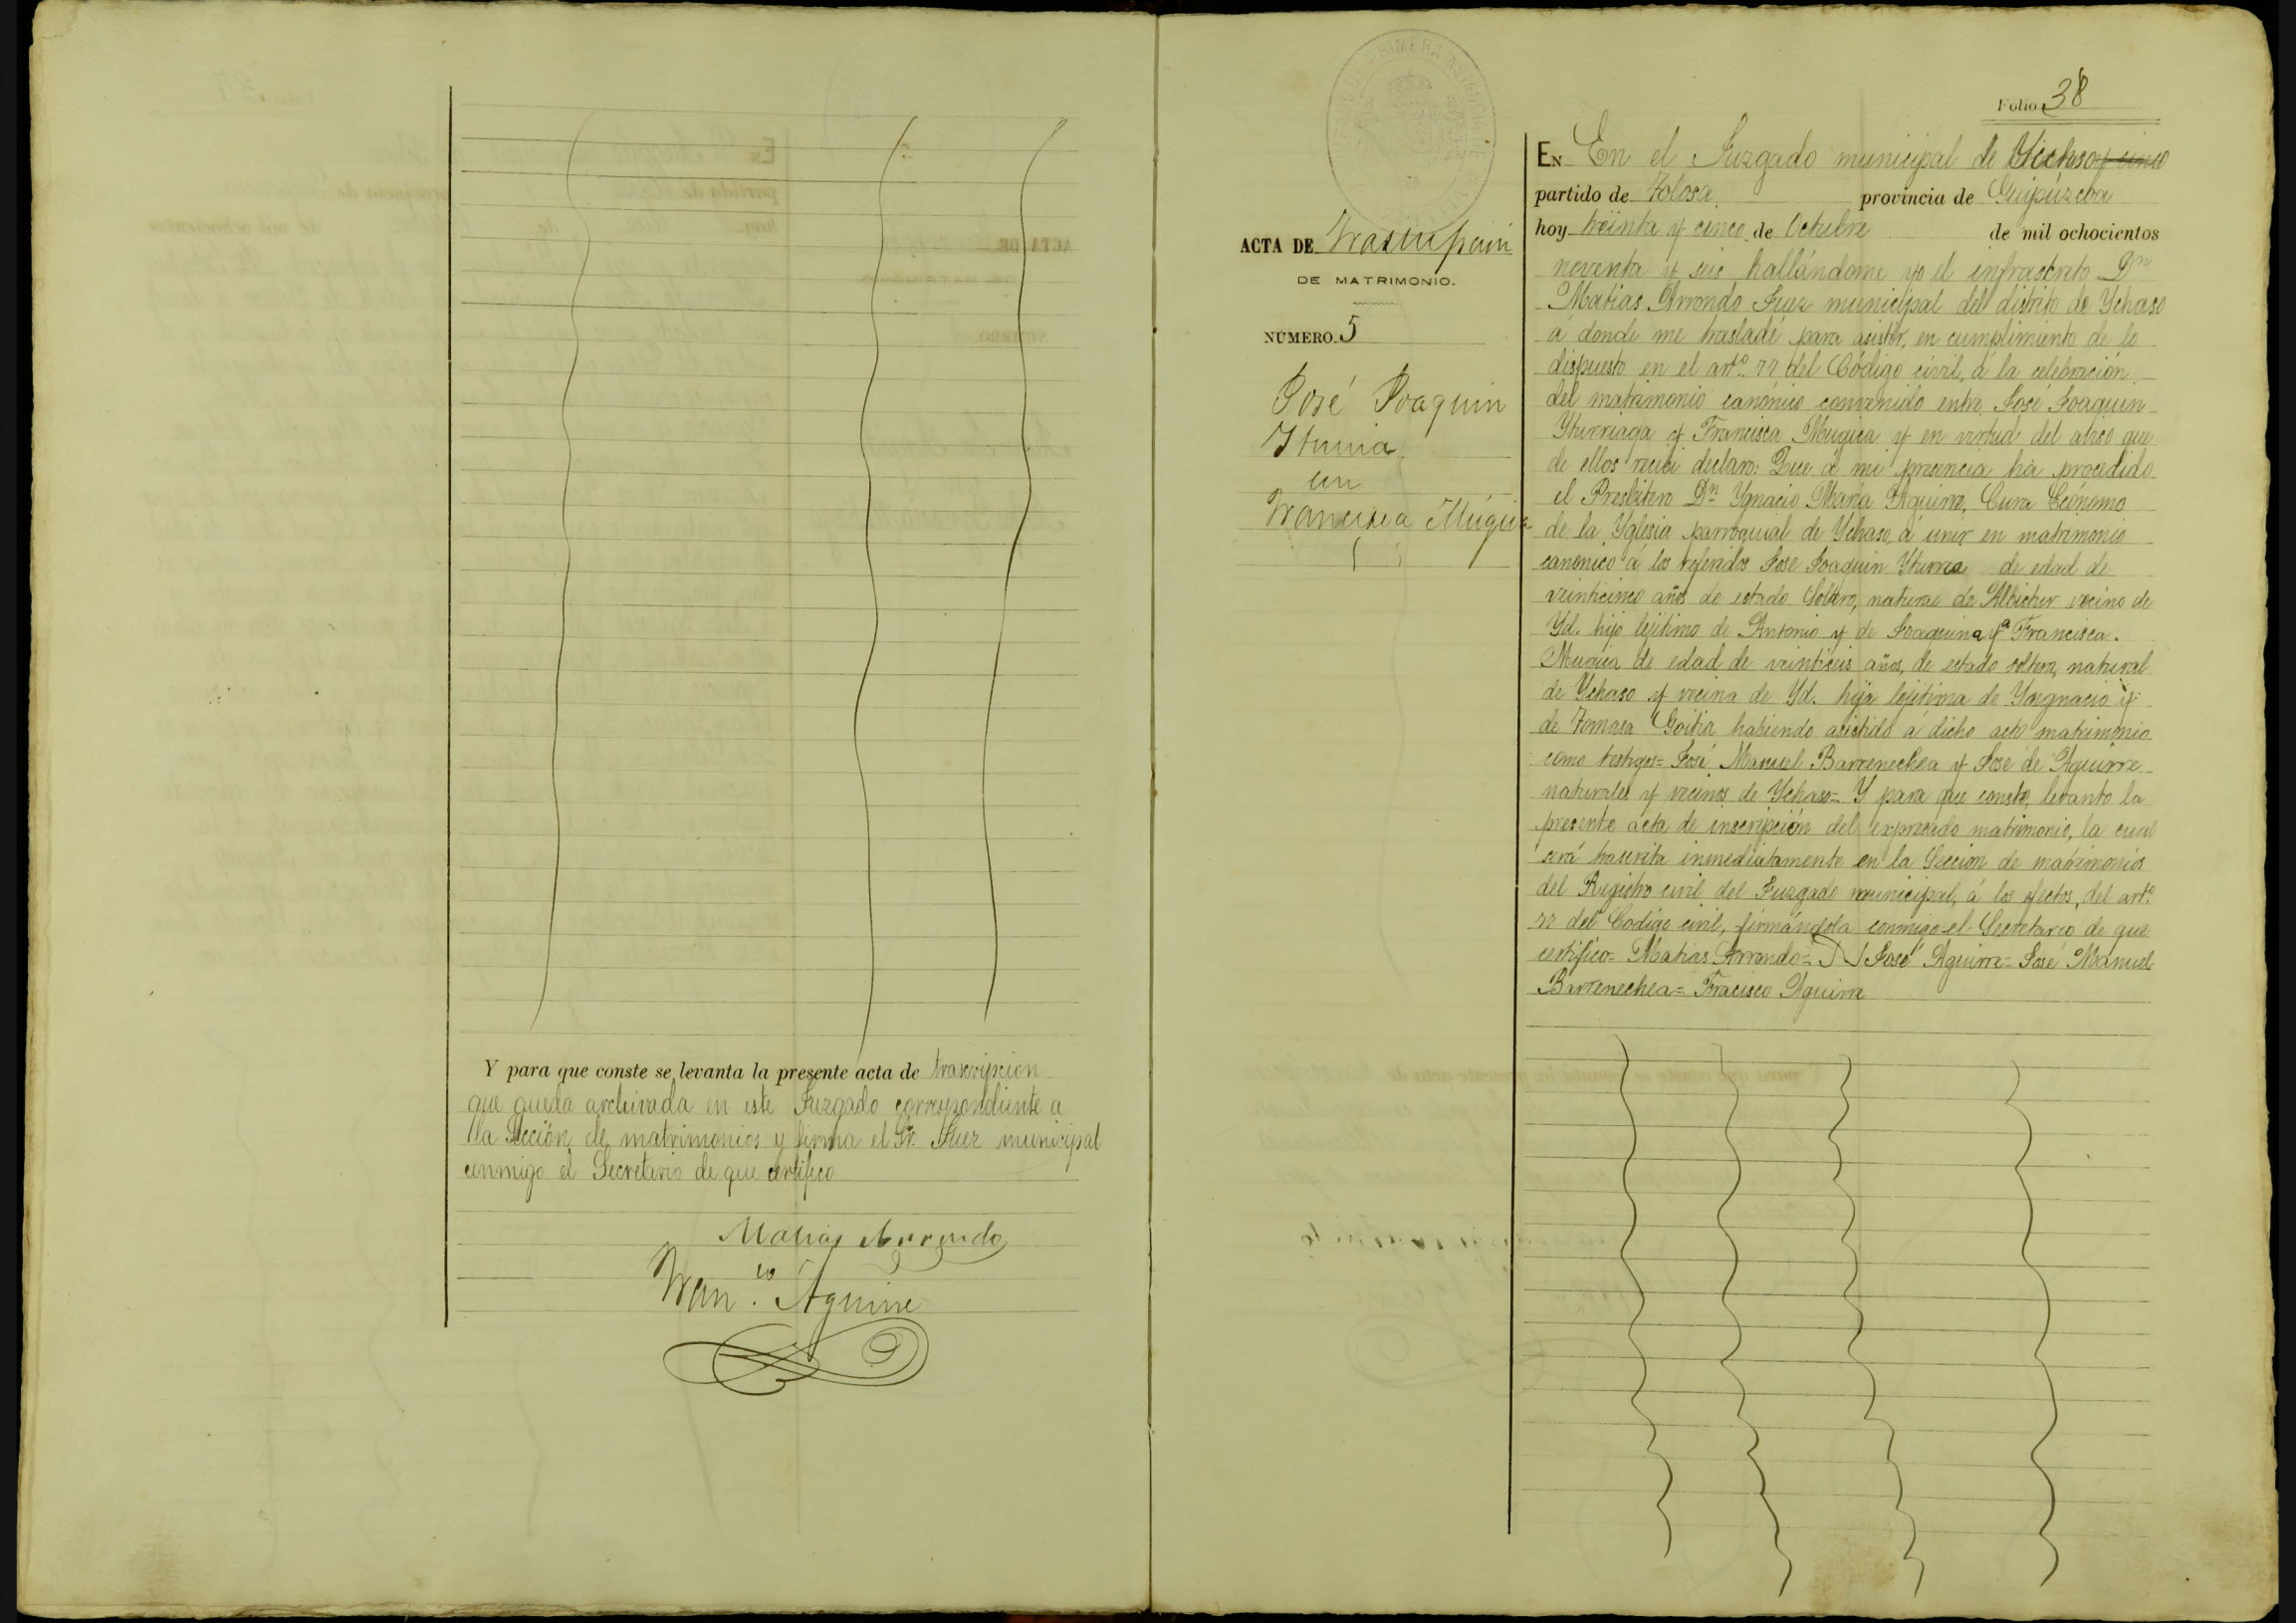 Y para que conste se levanta la presente acta de trascripcion
que queda archivada en este Juzgado correspondiente a
la Sección de matrimonios y firma el Sr. Juez municipal
conmigo el Secretario de que certifico
Matias Arrondo
Fran.co Aguirre
Folio 38
ACTA DE Trascripcion
DE MATRIMONIO.
NÚMERO 5
José Joaquin
Iturria
con
Francisca Múgica
EN En el Juzgado municipal de Ychaso
partido de Tolosa provincia de Guipúzcoa
hoy treinta y cinco de Octubre de mil ochocientos
noventa y seis hallándome yo el infrascrito Dn
Matias Arrondo Juez municipal del distrito de Ychaso
á donde me trasladé para asistir, en cumplimiento de lo
dispuesto en el arto. 77 del Código civil, á la celebración
del matrimonio canónico convenido entre José Joaquin
Yturriaga y Francisca Múgica y en virtud del aviso que
de ellos recibi declaro: Que á mi presencia ha procedido
el Presbitero Dn Ygnacio Maria Aguirre, Cura Ecónomo
de la Yglesia parroquial de Ychaso, á unir en matrimonio
canonico á los referidos José Joaquin Yturria de edad de
veinticinco años de estado Soltero, natural de Albistur vecino de
Yd. hijo lejitimo de Antonio y de Joaquina y a Francisca.
Mugica de edad de veintiseis años, de estado soltera, natural
de Ychaso y vecina de Yd. hija lejitima de Yngnacio y
de Tomasa Goitia habiendo asistido á dicho acto matrimonio
como testigos= José Manuel Barrenechea y José de Aguirre
naturales y vecinos de Ychaso= Y para que conste, levanto la
presente acta de inscripción del expresado matrimonio, la cual
será trascrita inmediatamente en la Seccion de matrimonios
del Registro civil del Juzgado municipal, á los efectos, del arto.
77 del Codigo civil, firmándola conmigo el Secretario de que
certifico= Matias Arrondo= José Aguirre= José Manuel
Barrenechea= Fracisco Aguirre